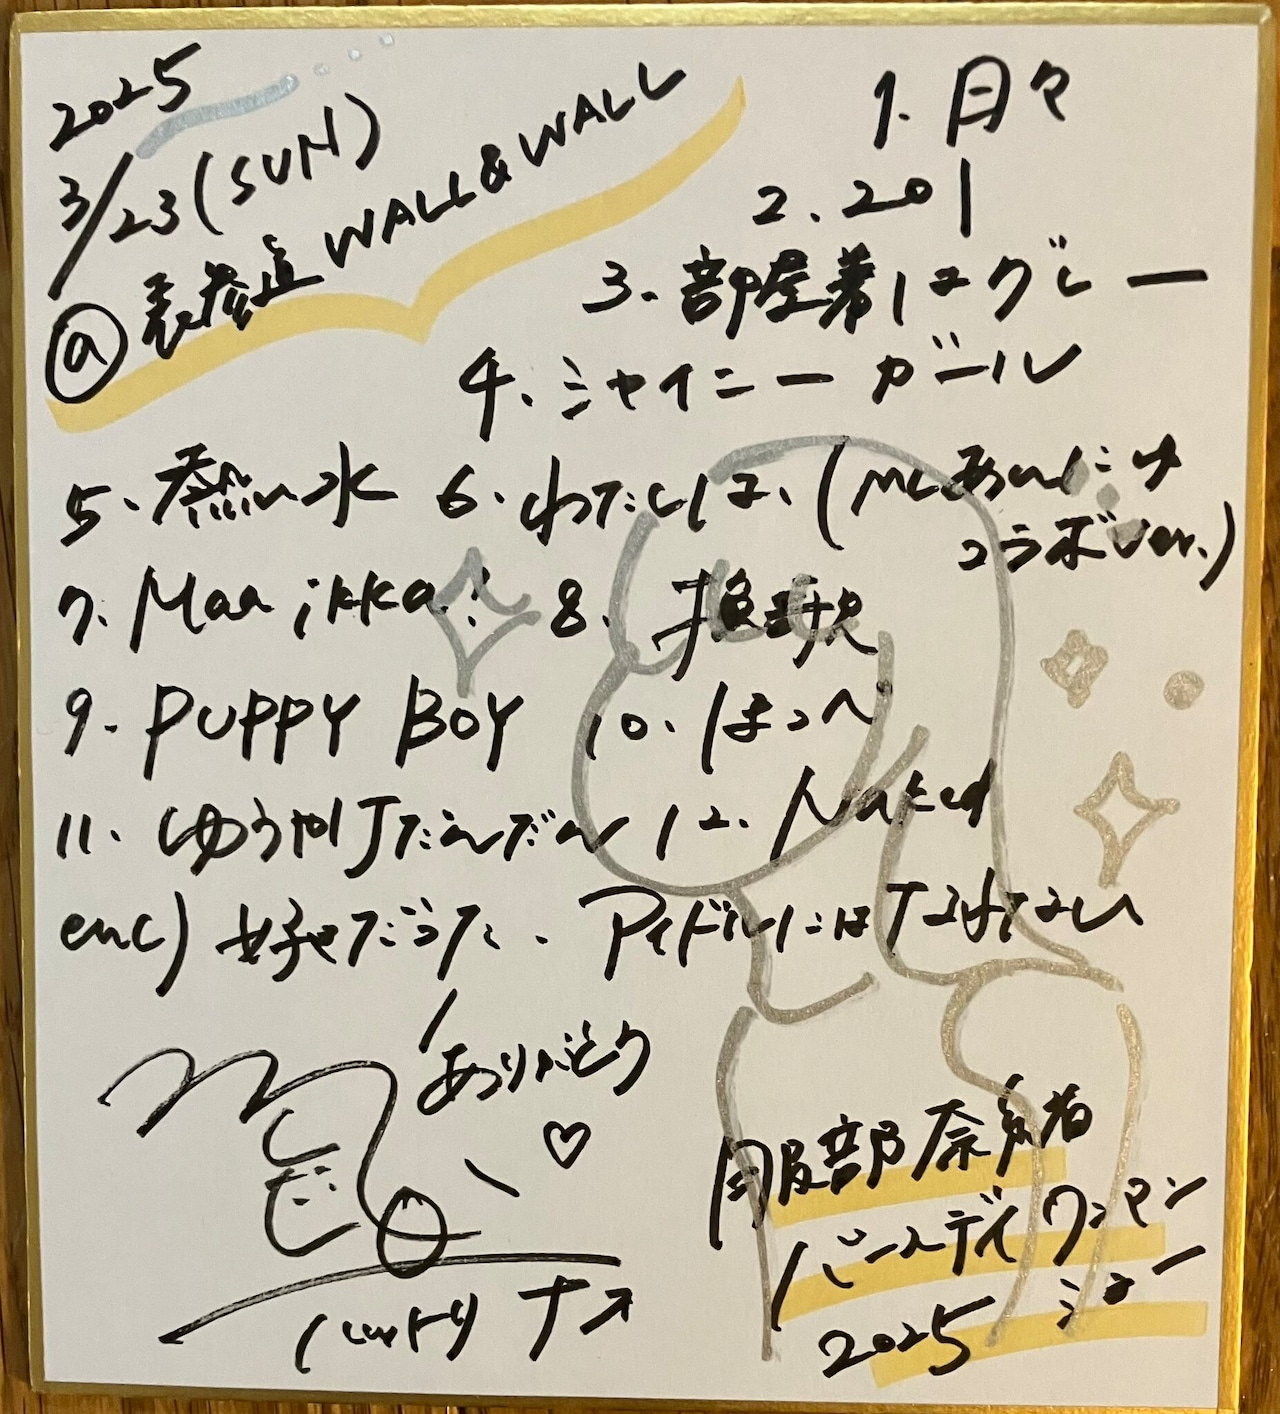 2025
3/23(SUN)
@表参道WALL&WALL
1. 月々
2. 201
3. 部屋着はグレー
4. シャイニーガール
5. 熱い水 6. わたしは、(MCあんにゅ
コラボver.)
7. Maa ikka! 8.
9. PUPPY BOY 10. はつべ
11. ゆうやけだんだん 12. Naked
enc) 好きだった、アイドルにはなれない
ありがとう
♡
はっとり ナヲ
服部奈多者
バースデイワンマン
ショー
2025